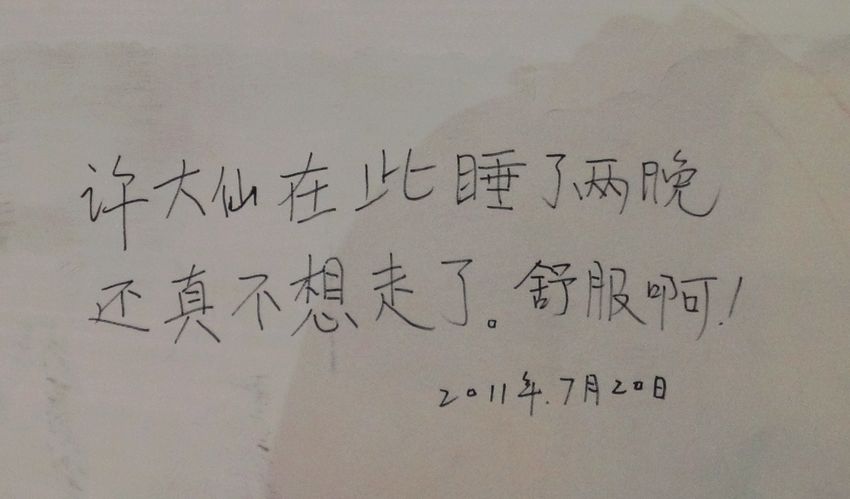 许大仙在此睡了两晚
还真不想走了。舒服啊!
2011年.7月20日